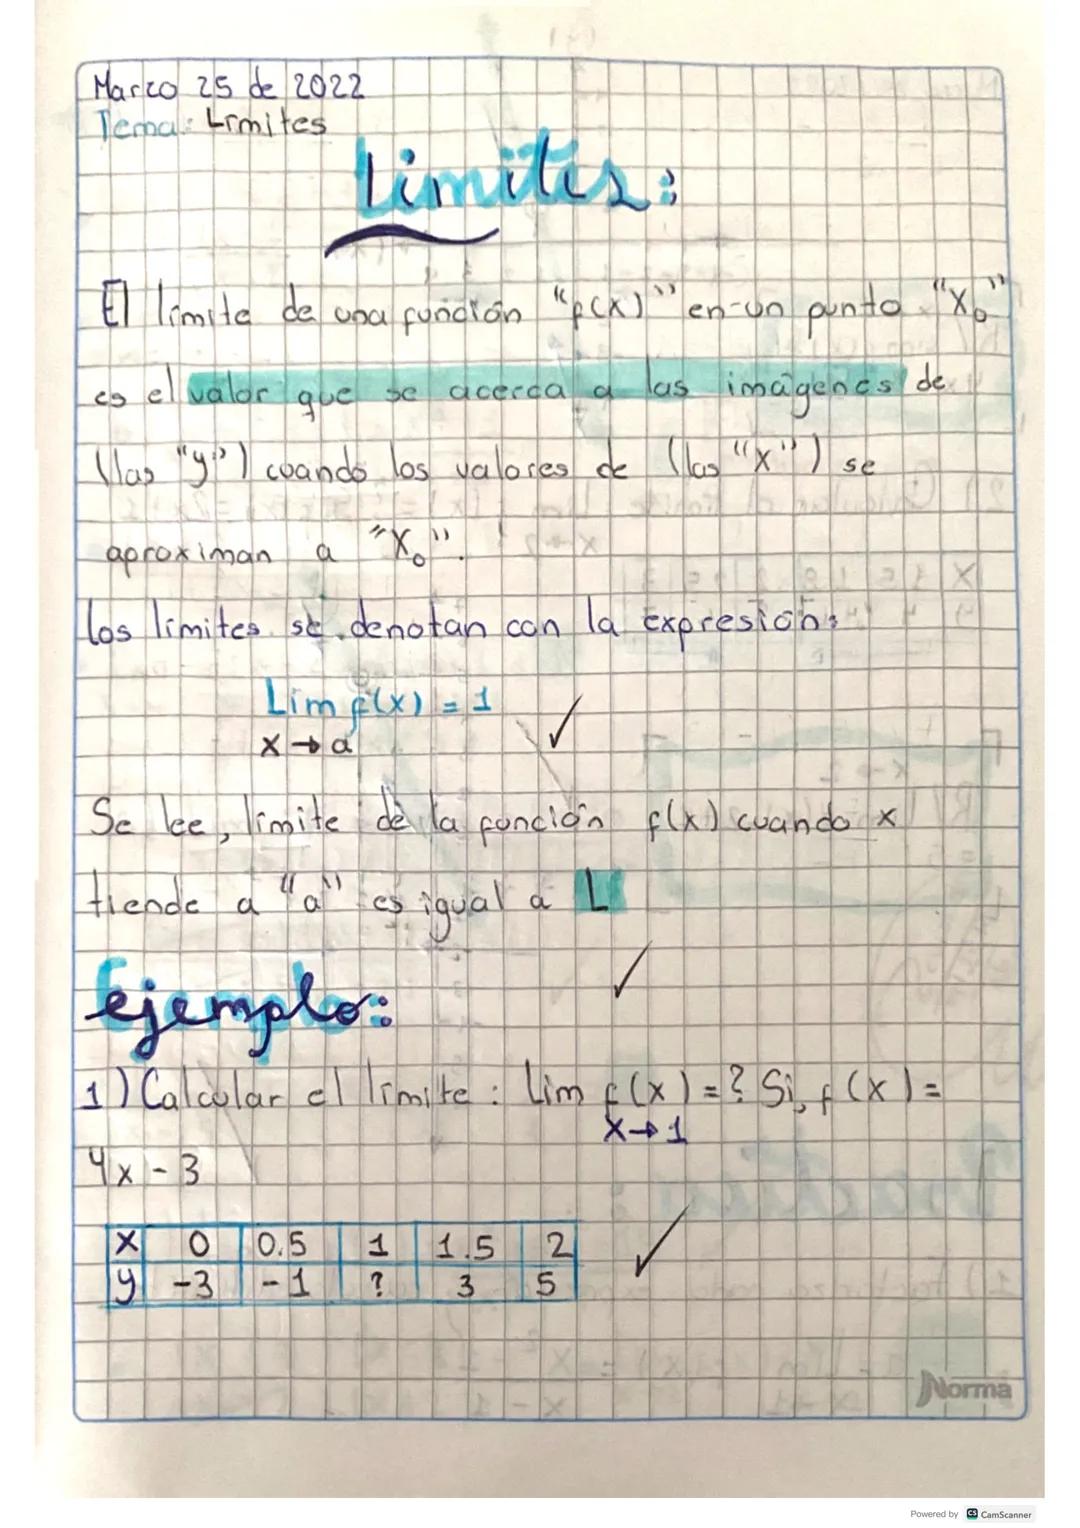 Marzo 25 de 2022
Tema: Límites
Límites:
El límite de una función "f(x)" en un punto "X₀"
es el valor que se acerca a las imágenes de
(las "y") cuando los valores de (las "X") se
aproximan a "X₀".
los límites se denotan con la expresión:
Lim f(x) = 1
X → a
Se lee, límite de la función f(x) cuando x
tiende a "a" es igual a L
Ejemplo:
1) Calcular el límite: Lim f(x) = ? Si, f(x) =
X → 1
4x - 3
X 0 0.5 1 1.5 2
y -3 -1 ? 3 5
Norma
Powered by CS CamScanner